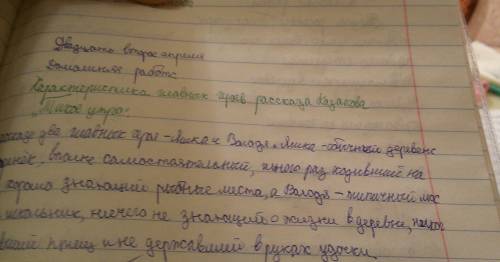 Двадцать второе апреля
Домашняя работа
Характеристика главных героев рассказа Казакова
"Тихое утро".
рассказе два главных героя - Яшка и Володя. Яшка - обычный деревенс
вполне самостоятельный, много раз ходивший на
хорошо знающий рыбные места, а Володя - типичный мос
школьник, ничего не знающий о жизни в деревне,
и не державший в руках удочки.